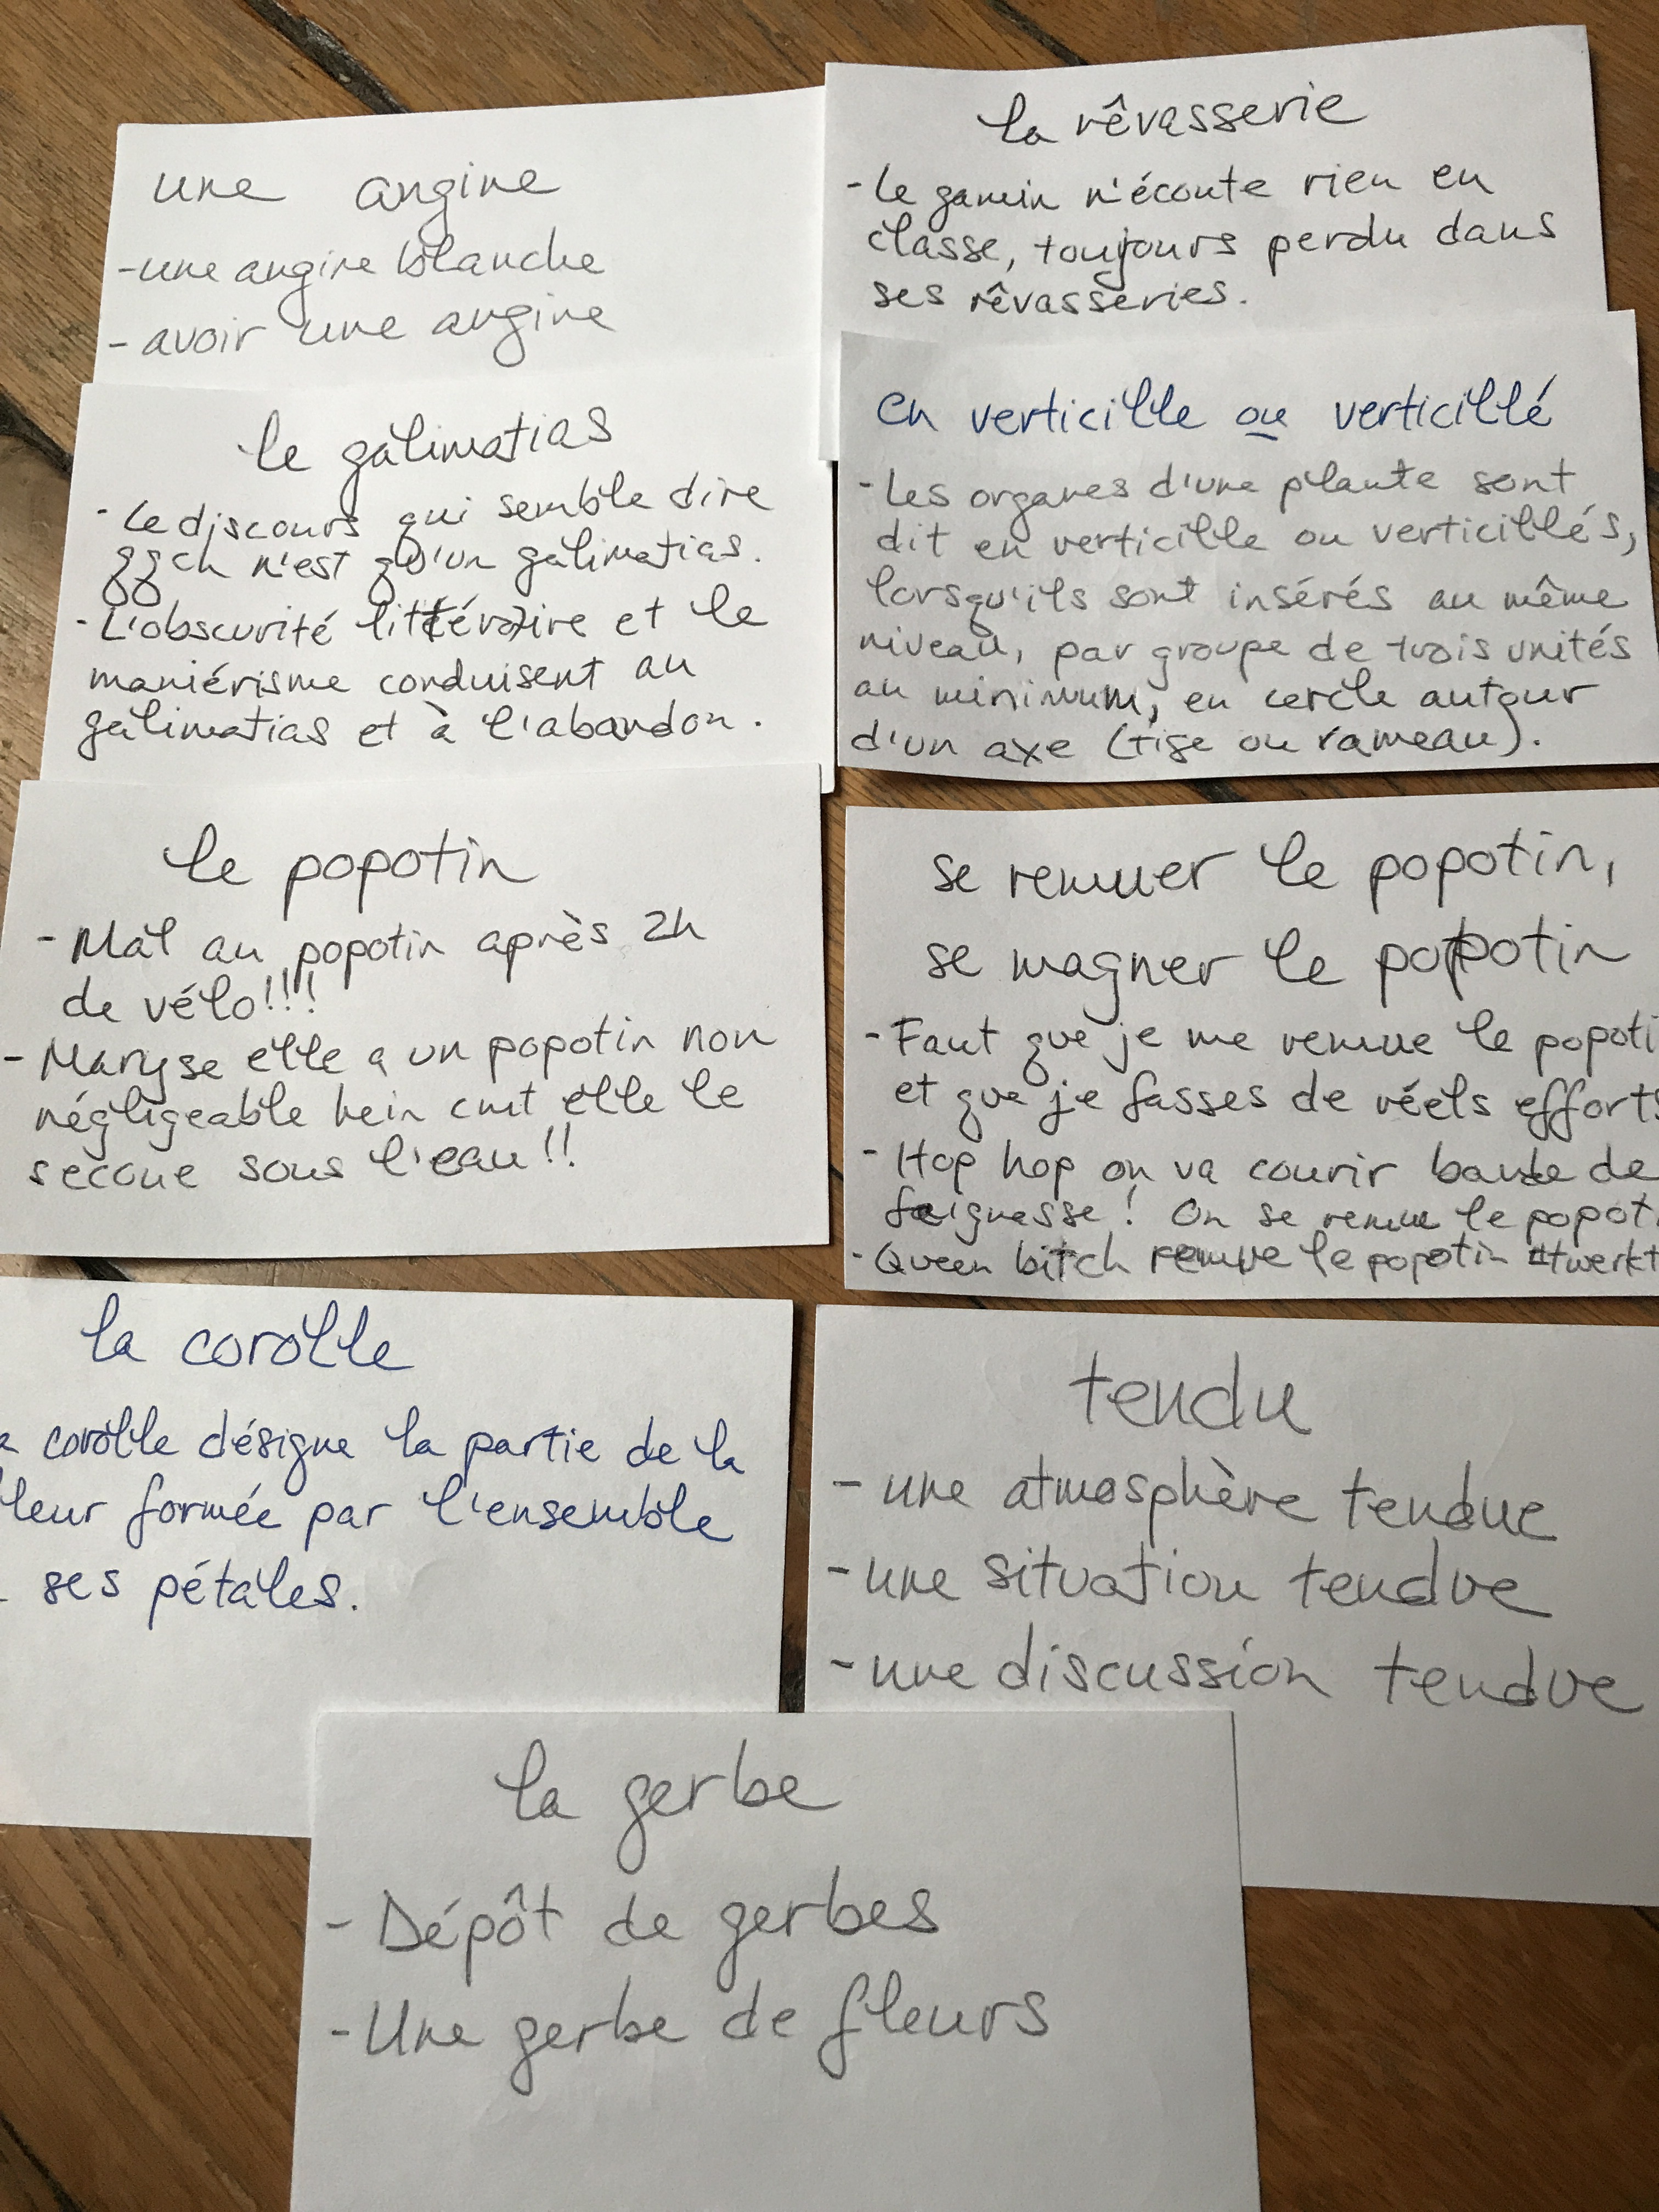 une angine
-une angine blanche
- avoir une angine
la rêvasserie
- le gamin n'écoute rien en
classe, toujours perdu dans
ses rêvasseries.
le galimatias
- Le discours qui semble dire
qqch n'est qu'un galimatias.
- L'obscurité littéraire et le
maniérisme conduisent au
galimatias et à l'abandon.
en verticille ou verticillé
- Les organes d'une plante sont
dit en verticille ou verticillés,
lorsqu'ils sont insérés au même
niveau, par groupe de trois unités
au minimum, en cercle autour
d'un axe (tige ou rameau).
le popotin
- Mal au popotin après 2h
de vélo!!!
- Maryse elle a un popotin non
négligeable hein cmt elle le
secoue sous l'eau!!
se remuer le popotin,
se magner le popotin
- Faut que je me remue le popoti
et que je fasses de réels efforts
- Hop hop on va courir bande de
feignasse! On se remue le popot
- Queen bitch remue le popotin #twerkt
la corolle
a corolle désigne la partie de la
leur formée par l'ensemble
ses pétales.
tendu
- une atmosphère tendue
- une situation tendue
- une discussion tendue
la gerbe
- Dépôt de gerbes
- Une gerbe de fleurs